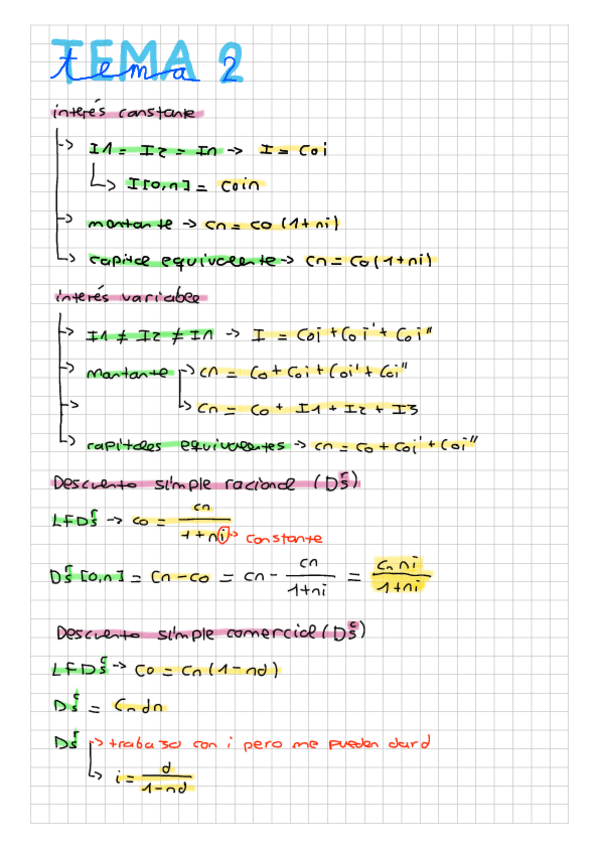 TEMA 2
tema 2
interés constante
-> I1 = I2 = In -> I = Coi
↳ I[0,n] = Coin
-> montante -> Cn = Co (1+ni)
-> capital equivalente -> Cn = Co (1+ni)
interés variable
-> I1 ≠ I2 ≠ In -> I = Coi + Coi' + Coi''
-> montante -> Cn = Co + Coi + Coi' + Coi''
-> ↳ Cn = Co + I1 + I2 + I3
↳ capitales equivalentes -> Cn = Co + Coi' + Coi''
Descuento simple racional (Dʳs)
LFDʳs -> Co = Cn / 1+ni -> constante
Dʳs [0,n] = Cn - Co = Cn - Cn / 1+ni = Cn ni / 1+ni
Descuento simple comercial (Dᶜs)
LFDᶜs -> Co = Cn (1-nd)
Dᶜs = Cn dn
Dʳs -> trabajo con i pero me pueden dar d
↳ i = d / 1-nd